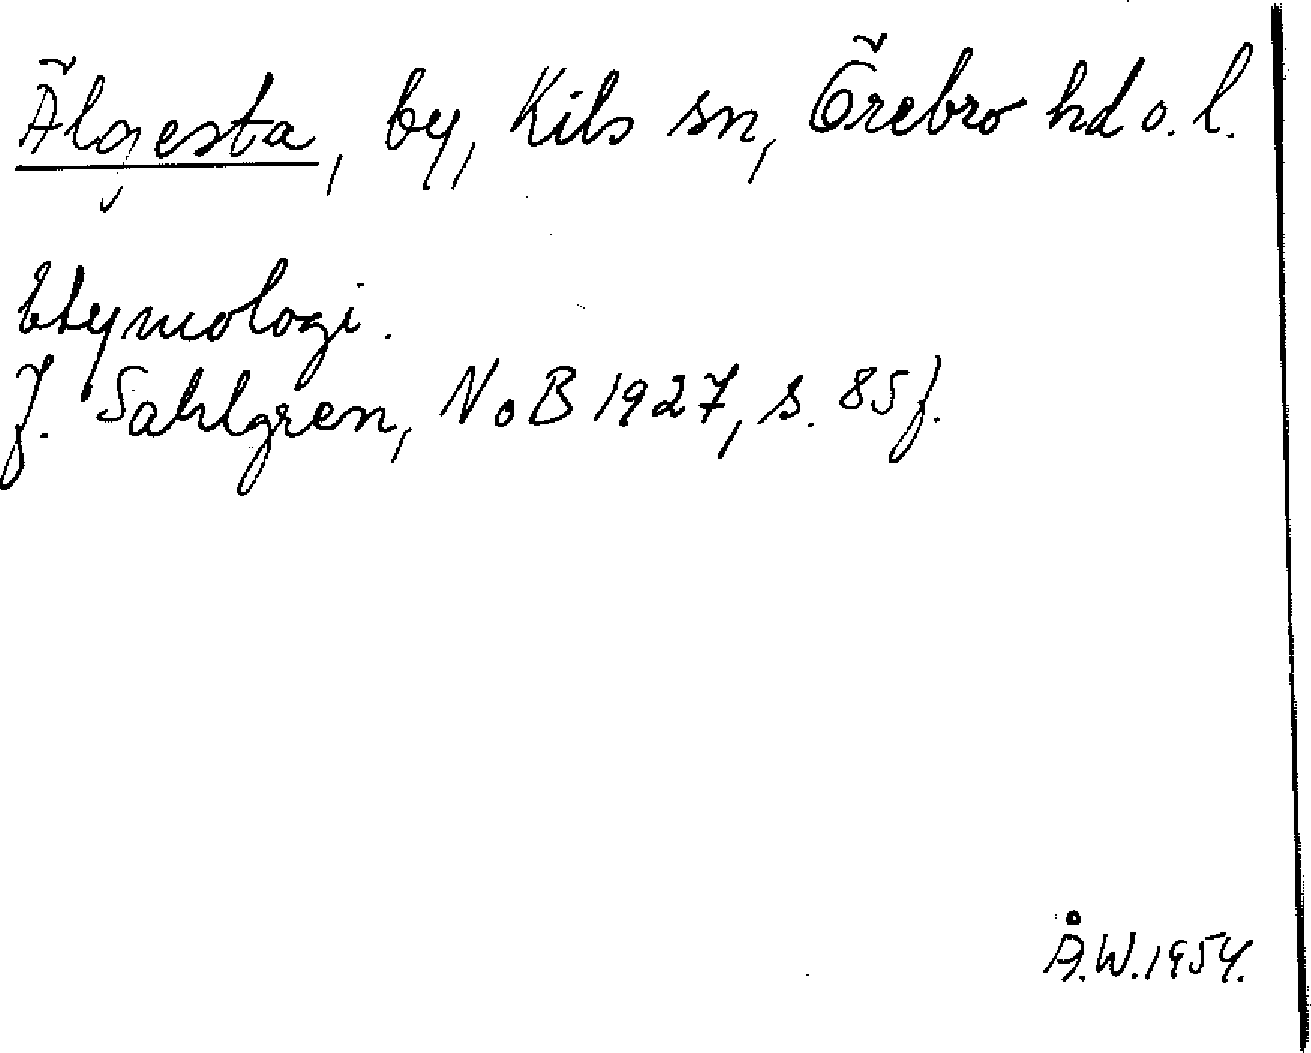 Älgesta, by, Kils sn, Örebro hd o. l.
Etymologi.
J. Sahlgren, NoB 1927, s. 85 f.
Å.W.1954.